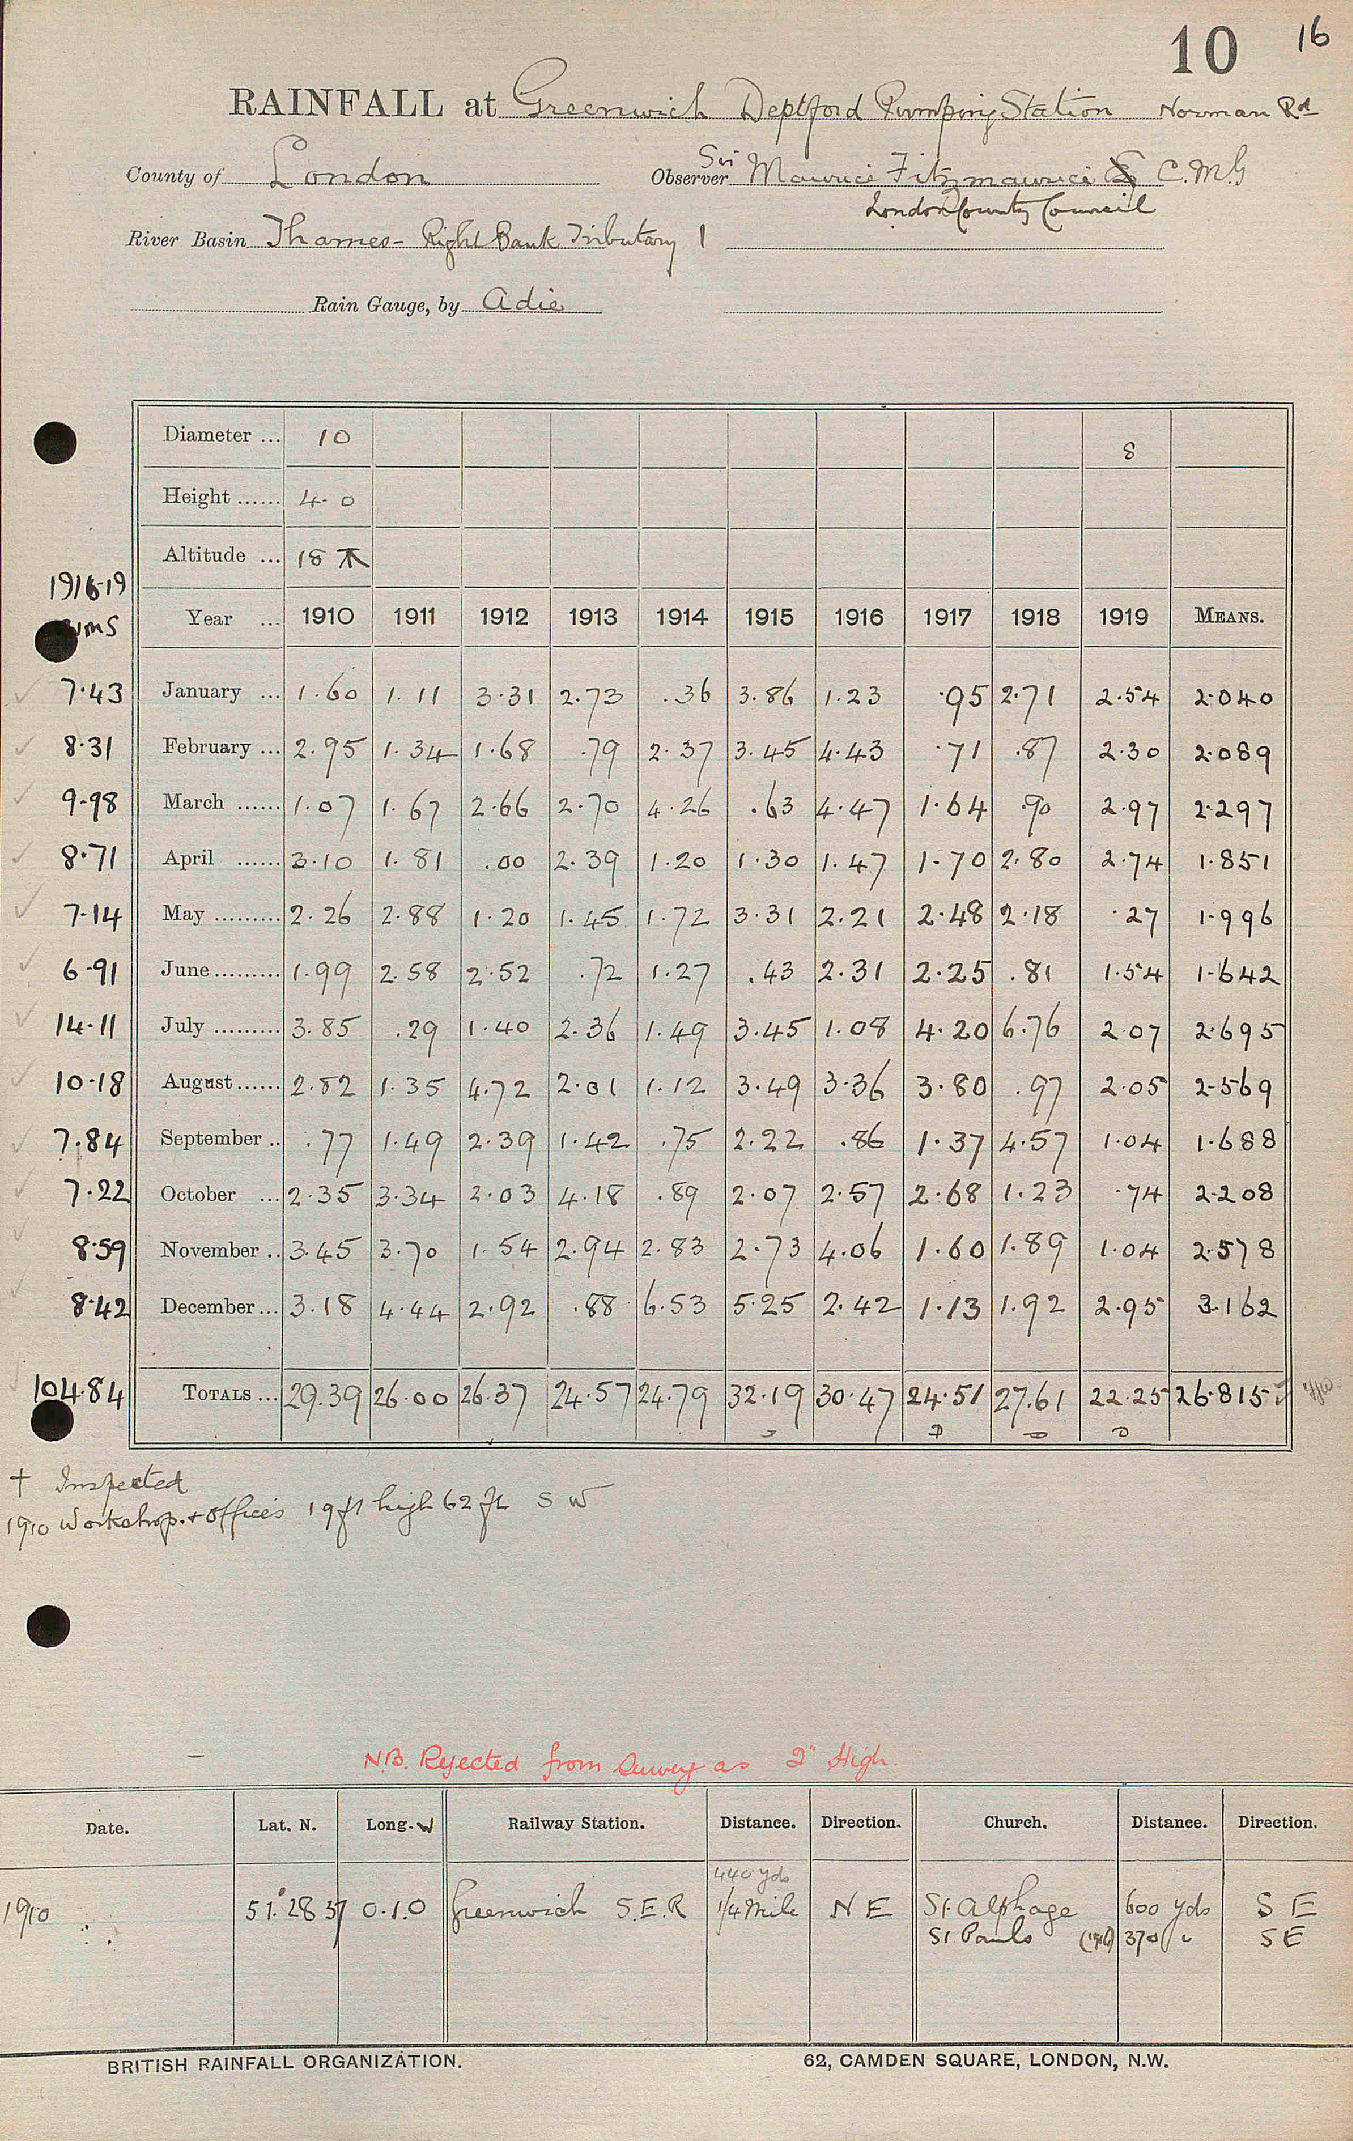 10 16
RAINFALL at Greenwich Deptford Pumping Station Norman Rd
County of London Observer Sir Maurice Fitzmaurice C.M.G
London County Council
River Basin Thames - Right Bank Tributary 1
Rain Gauge, by Adie
Diameter ... 10 8
Height ...... 4-0
Altitude ... 18
1916-19 Sums
Year ... 1910 1911 1912 1913 1914 1915 1916 1917 1918 1919 MEANS.
7.43 January ... 1.60 1.11 3.31 2.73 .36 3.86 1.23 .95 2.71 2.54 2.040
8.31 February ... 2.95 1.34 1.68 .79 2.37 3.45 4.43 .71 .87 2.30 2.089
9.98 March ...... 1.07 1.67 2.66 2.70 4.26 .63 4.47 1.64 .90 2.97 2.297
8.71 April ...... 3.10 1.81 .00 2.39 1.20 1.30 1.47 1.70 2.80 2.74 1.851
7.14 May ......... 2.26 2.88 1.20 1.45 1.72 3.31 2.21 2.48 2.18 .27 1.996
6.91 June ......... 1.99 2.58 2.52 .72 1.27 .43 2.31 2.25 .81 1.54 1.642
14.11 July ......... 3.85 .29 1.40 2.36 1.49 3.45 1.08 4.20 6.76 2.07 2.695
10.18 August ...... 2.82 1.35 4.72 2.01 1.12 3.49 3.36 3.80 .97 2.05 2.569
7.84 September .. .77 1.49 2.39 1.42 .75 2.22 .86 1.37 4.57 1.04 1.688
7.22 October ... 2.35 3.34 2.03 4.18 .89 2.07 2.57 2.68 1.23 .74 2.208
8.59 November .. 3.45 3.70 1.54 2.94 2.83 2.73 4.06 1.60 1.89 1.04 2.578
8.42 December ... 3.18 4.44 2.92 .88 6.53 5.25 2.42 1.13 1.92 2.95 3.162
104.84 TOTALS ... 29.39 26.00 26.37 24.57 24.79 32.19 30.47 24.51 27.61 22.25 26.815
† Inspected
1910 Workshop. + offices 19 ft high 62 ft S W
N.B. Rejected from Survey as 2" High.
Date. Lat. N. Long. W Railway Station. Distance. Direction. Church. Distance. Direction.
440 yds
1910 51.°28 37 0.1.0 Greenwich S.E.R 1/4 Mile N E St. Alphage 600 yds S E
St Pauls 370 " S E
BRITISH RAINFALL ORGANIZATION. 62, CAMDEN SQUARE, LONDON, N.W.